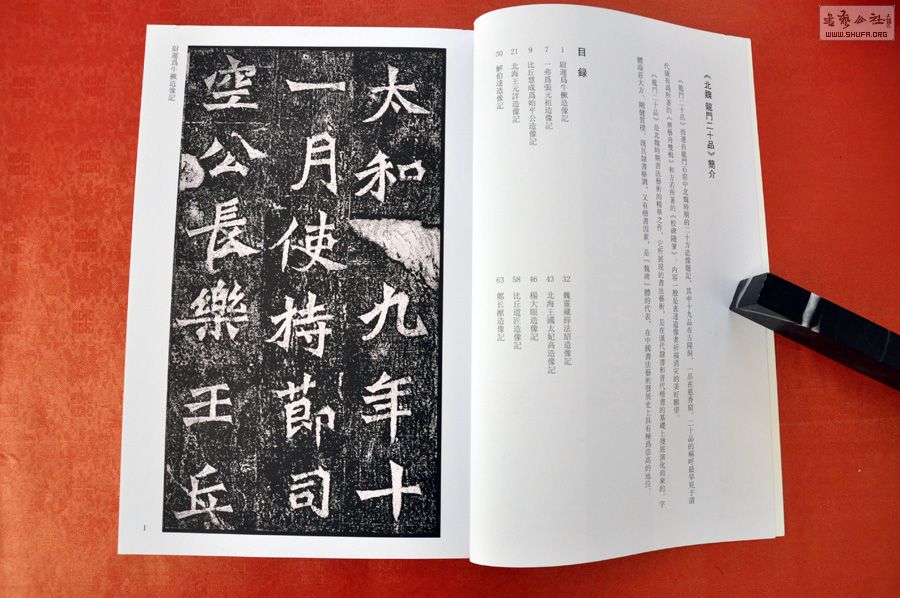 《北魏 龍門二十品》簡介
《龍門二十品》指選自龍門石窟中北魏時期的二十方造像題記，其中十九品在古陽洞，一品在慈香窟。二十品的稱呼最早見于清
代康有爲所著的《廣藝舟雙楫》和方若所著的《校碑隨筆》。内容一般是表達造像者祈福消灾的美好願望。
《龍門二十品》是北魏時期書法藝術的精華之作，它所展現的書法藝術，是在漢代隸書和晋代楷書的基礎上發展演化而來的，字
體端莊大方，剛健質樸，既具隸書格調，又有楷書因素，是「魏碑」體的代表，在中國書法藝術發展史上具有極爲崇高的地位。
目録
1 尉遲爲牛橛造像記
7 一弗爲張元祖造像記
9 比丘慧成爲始平公造像記
21 北海王元詳造像記
30 解伯達造像記
32 魏靈藏薛法紹造像記
43 北海王國太妃高造像記
46 楊大眼造像記
58 比丘道匠造像記
63 鄭長猷造像記
太和九年十
一月使持節司
空公長樂王丘
尉遲爲牛橛造像記
1
書藝公社
WWW.SHUFA.ORG